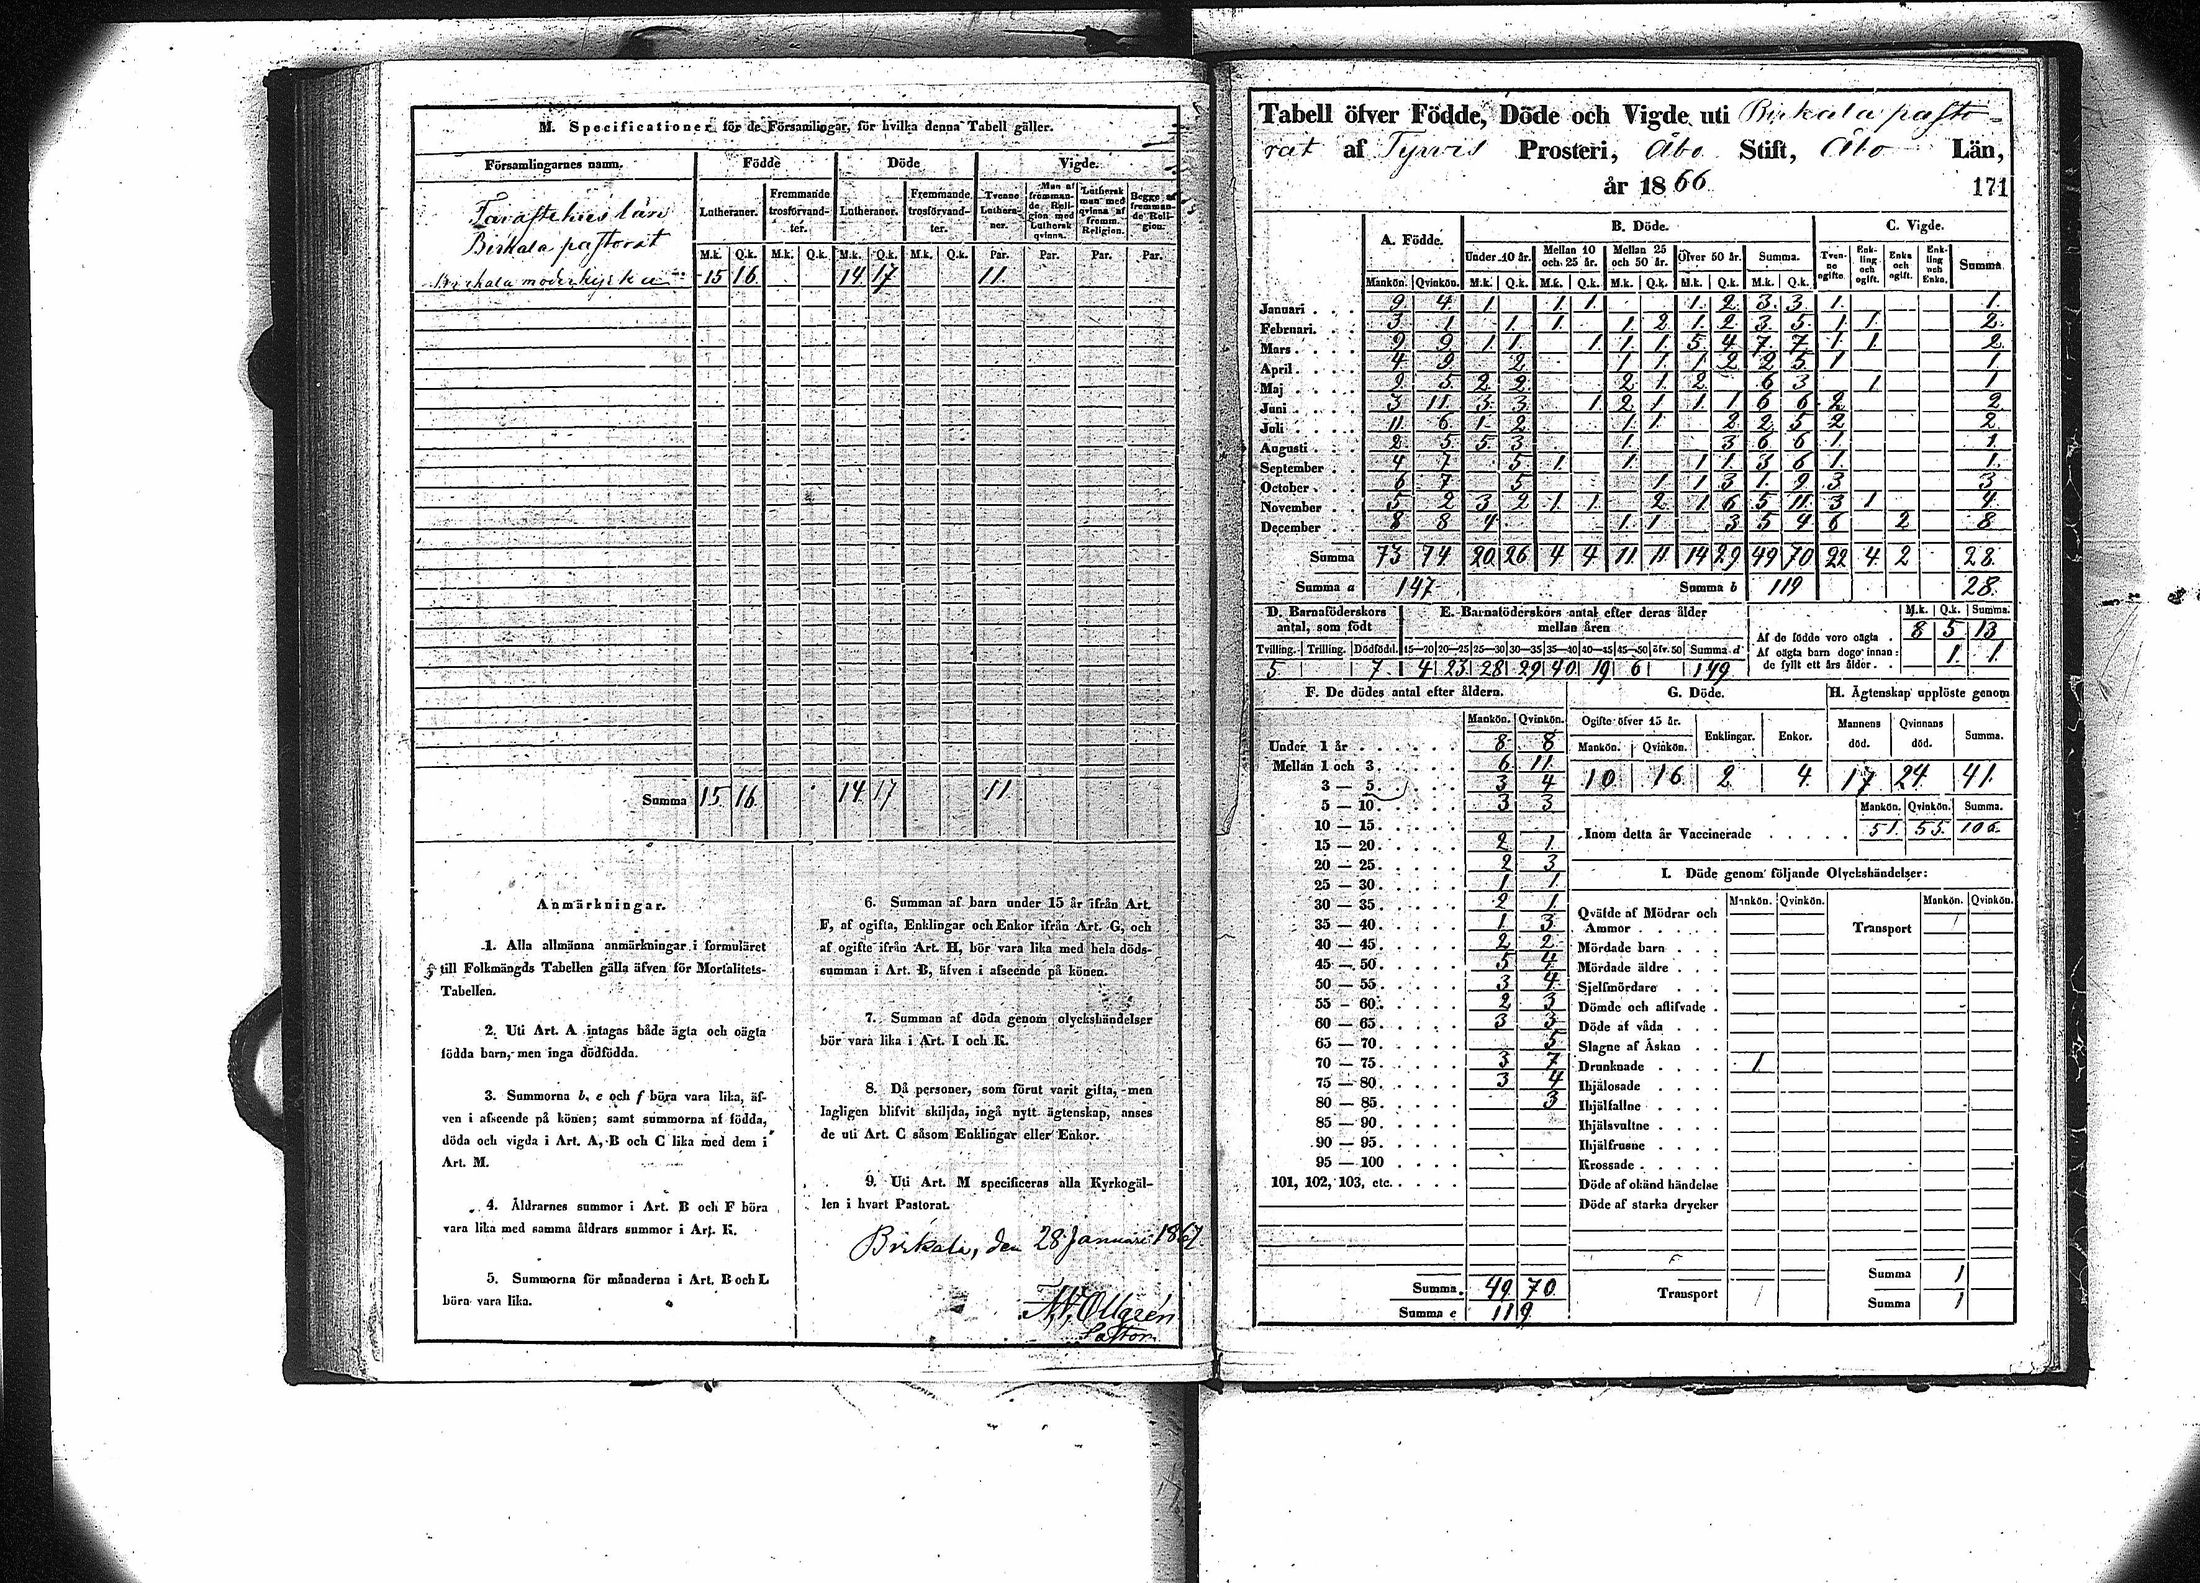 M. Specificationer för de Församlingar, för hvilka denna Tabell gäller.
Församlingarnes namn. Födde Döde Vigde.
Lutheraner. Fremmande trosförvandter. Lutheraner. Fremmande trosförvandter. Tvenne Lutheraner. Man af fremmande Religion med Luthersk qvinna. Luthersk man med qvinna af fremm. Religion. Begge af fremmande Religion.
M.k. Q.k. M.k. Q.k. M.k. Q.k. M.k. Q.k. Par. Par. Par. Par.
Tavastehus län
Birkala pastorat
Birkala moderkyrka 15 16 14 17 11
Summa 15 16 14 17 11
Anmärkningar.
1. Alla allmänna anmärkningar i formuläret
till Folkmängds Tabellen gälla äfven för Mortalitets-
Tabellen.
2. Uti Art. A intagas både ägta och oägta
födda barn, men inga dödfödda.
3. Summorna b, e och f böra vara lika, äf-
ven i afseende på könen; samt summorna af födda,
döda och vigda i Art. A, B och C lika med dem i
Art. M.
4. Åldrarnes summor i Art. B och F böra
vara lika med samma åldrars summor i Art. K.
5. Summorna för månaderna i Art. B och L
böra vara lika.
6. Summan af barn under 15 år ifrån Art.
F, af ogifta, Enklingar och Enkor ifrån Art. G, och
af ogifte ifrån Art. H, bör vara lika med hela döds-
summan i Art. B, äfven i afseende på könen.
7. Summan af döda genom olyckshändelser
bör vara lika i Art. I och K.
8. Då personer, som förut varit gifta, men
lagligen blifvit skiljda, ingå nytt ägtenskap, anses
de uti Art. C såsom Enklingar eller Enkor.
9. Uti Art. M specificeras alla Kyrkogäl-
len i hvart Pastorat.
Birkala, den 28 Januari 1867
Pastor
Tabell öfver Födde, Döde och Vigde uti Birkala pasto-
rat af Tyrvis Prosteri, Åbo Stift, Åbo Län,
år 1866 171
A. Födde. B. Döde. C. Vigde.
Under 10 år. Mellan 10 och 25 år. Mellan 25 och 50 år. Öfver 50 år. Summa. Tvenne ogifte. Enkling och ogift. Enka och ogift. Enkling och Enka. Summa.
Mankön. Qvinkön. M.k. Q.k. M.k. Q.k. M.k. Q.k. M.k. Q.k. M.k. Q.k.
Januari 9 4 1 1 1 1 2 3 3 1 1
Februari 3 1 1 1 1 2 1 2 3 5 1 1 2
Mars 9 9 1 1 1 1 1 5 4 7 7 1 1 2
April 4 9 2 1 1 1 2 2 5 1 1
Maj 9 5 2 2 2 1 2 6 3 1 1
Juni 3 11 3 3 1 2 1 1 1 6 6 2 2
Juli 11 6 1 2 1 1 2 2 5 2 2
Augusti 2 5 5 3 1 3 6 6 1 1
September 4 7 5 1 1 1 1 3 6 1 1
October 6 7 5 1 1 3 1 9 3 3
November 5 2 3 2 1 1 2 1 6 5 11 3 1 4
December 8 8 4 1 1 3 5 4 6 2 8
Summa 73 74 20 26 4 4 11 11 14 29 49 70 22 4 2 28
Summa a 147 Summa b 119 28
D. Barnaföderskors antal, som födt
E. Barnaföderskors antal efter deras ålder mellan åren
Tvilling. Trilling. Dödfödd. 15—20 20—25 25—30 30—35 35—40 40—45 45—50 öfv. 50 Summa d
5 7 4 23 28 29 40 19 6 149
M.k. Q.k. Summa.
Af de födde voro oägta 8 5 13
Af oägta barn dogo innan de fyllt ett års ålder 1 1
F. De dödes antal efter åldern.
Mankön. Qvinkön.
Under 1 år 8 8
Mellan 1 och 3 6 11
3 — 5 3 4
5 — 10 3 3
10 — 15
15 — 20 2 1
20 — 25 2 3
25 — 30 1 1
30 — 35 2 1
35 — 40 1 3
40 — 45 2 2
45 — 50 5 4
50 — 55 3 4
55 — 60 2 3
60 — 65 3 3
65 — 70 5
70 — 75 3 7
75 — 80 3 4
80 — 85 3
85 — 90
90 — 95
95 — 100
101, 102, 103, etc.
Summa 49 70
Summa e 119
G. Döde.
Ogifte öfver 15 år. Enklingar. Enkor.
Mankön. Qvinkön.
10 16 2 4
H. Ägtenskap upplöste genom
Mannens död. Qvinnans död. Summa.
17 24 41
Mankön. Qvinkön. Summa.
Inom detta år Vaccinerade 51 55 106
I. Döde genom följande Olyckshändelser:
Mankön. Qvinkön. Mankön. Qvinkön.
Qväfde af Mödrar och Ammor
Transport 1
Mördade barn
Mördade äldre
Sjelfmördare
Dömde och aflifvade
Döde af våda
Slagne af Åskan
Drunknade 1
Ihjälosade
Ihjälfallne
Ihjälsvultne
Ihjälfrusne
Krossade
Döde af okänd händelse
Döde af starka drycker
Transport 1
Summa 1
Summa 1